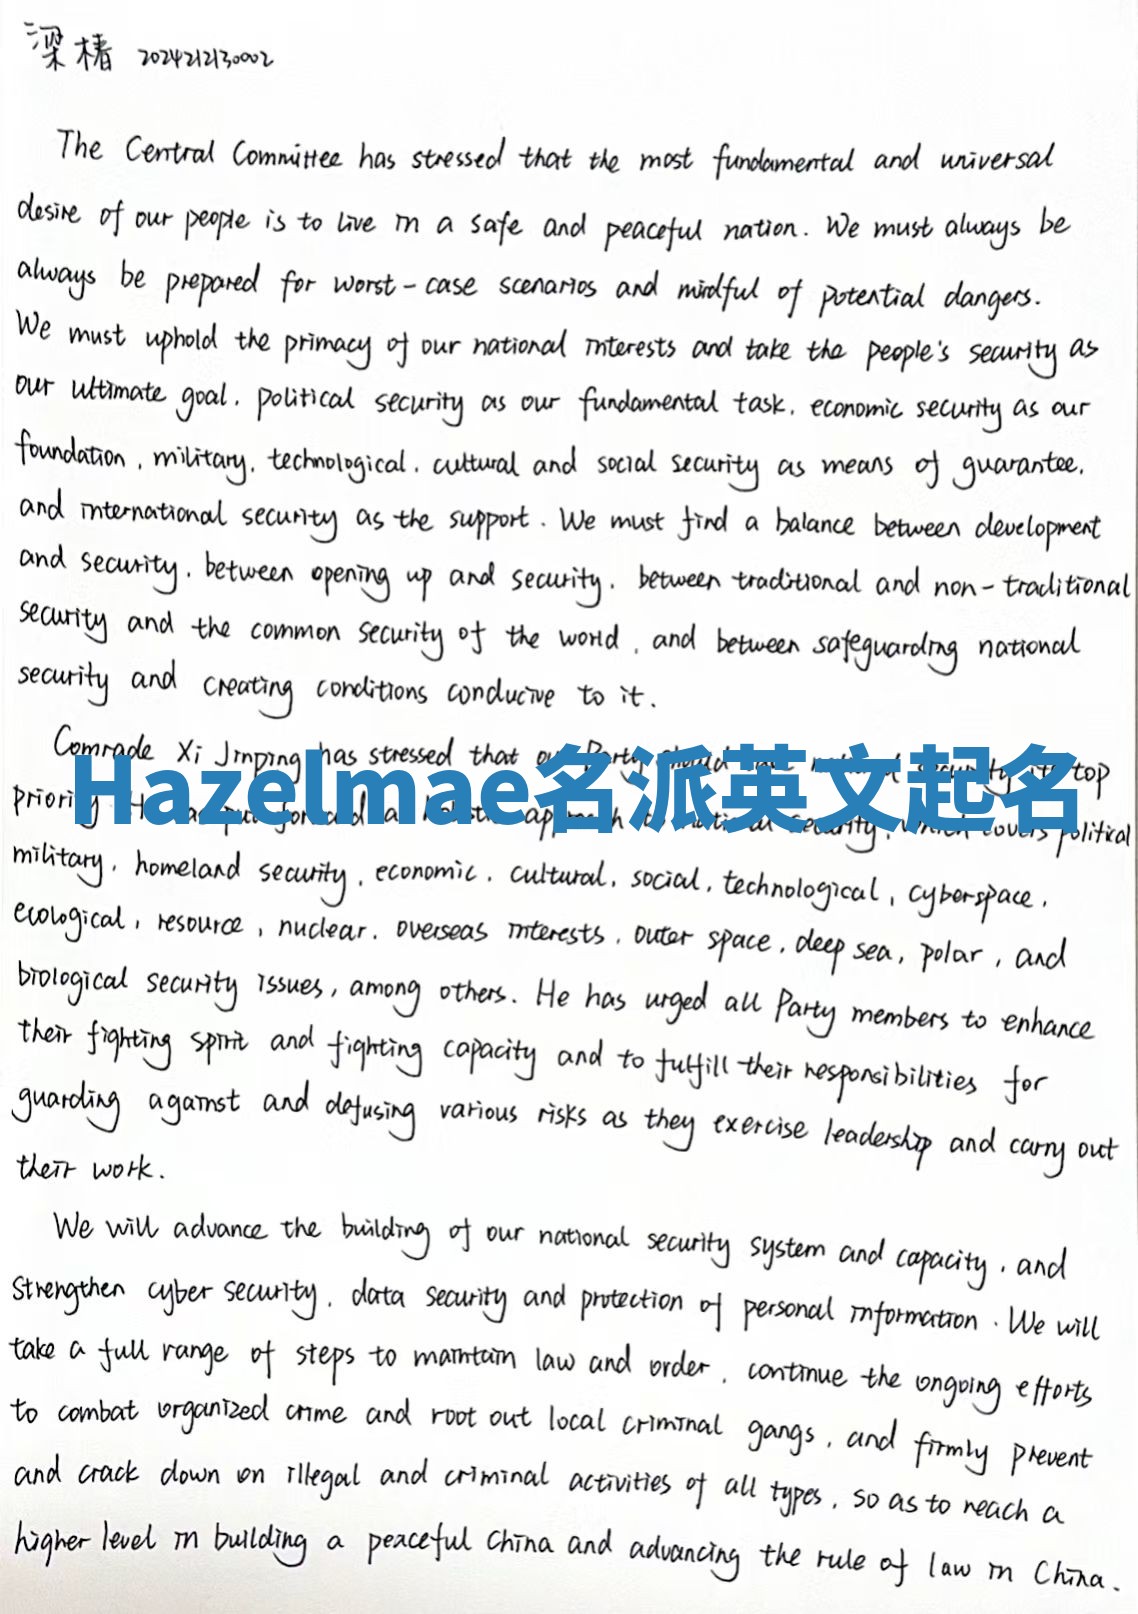 梁椿 2024212130002
The Central Committee has stressed that the most fundamental and universal
desire of our people is to live in a safe and peaceful nation. We must always be
always be prepared for worst-case scenarios and mindful of potential dangers.
We must uphold the primacy of our national interests and take the people's security as
our ultimate goal, political security as our fundamental task, economic security as our
foundation, military, technological, cultural and social security as means of guarantee,
and international security as the support. We must find a balance between development
and security, between opening up and security, between traditional and non-traditional
security and the common security of the world, and between safeguarding national
security and creating conditions conducive to it.
Comrade Xi Jinping has stressed that our Party should top
Hazelmae名派英文起名
priority approach security, which covers political
military, homeland security, economic, cultural, social, technological, cyberspace,
ecological, resource, nuclear, overseas interests, outer space, deep sea, polar, and
biological security issues, among others. He has urged all Party members to enhance
their fighting spirit and fighting capacity and to fulfill their responsibilities for
guarding against and defusing various risks as they exercise leadership and carry out
their work.
We will advance the building of our national security system and capacity, and
strengthen cyber security, data security and protection of personal information. We will
take a full range of steps to maintain law and order, continue the ongoing efforts
to combat organized crime and root out local criminal gangs, and firmly prevent
and crack down on illegal and criminal activities of all types, so as to reach a
higher level in building a peaceful China and advancing the rule of law in China.